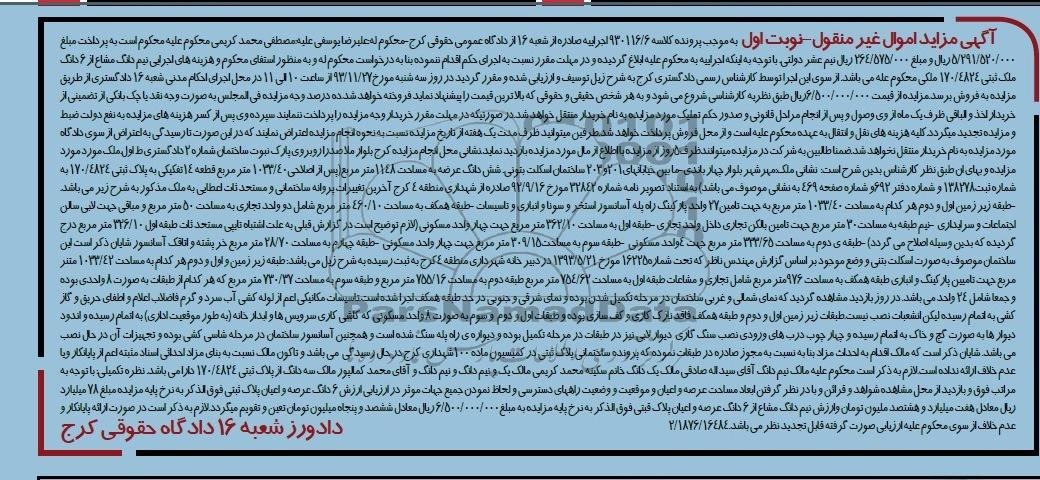 آگهی مزاید اموال غیر منقول-نوبت اول به موجب پرونده کلاسه ۹۳۰۱۱۶/۶ اجراییه صادره از شعبه ۱۶ از دادگاه عمومی حقوقی کرج-محکوم له علیرضا یوسفی علیه مصطفی محمد کریمی محکوم علیه محکوم است به پرداخت مبلغ
۵/۲۹۱/۵۲۰/۰۰۰ ریال و مبلغ ۲۶۴/۵۷۵/۰۰۰ ریال نیم عشر دولتی با توجه به اینکه اجراییه به محکوم علیه ابلاغ گردیده و در مهلت مقرر نسبت به اجرای حکم اقدام ننموده بنا به درخواست محکوم له و به منظور استفای محکوم و هزینه های اجرایی نیم دانگ مشاع از ۶ دانگ
ملک ثبتی ۱۷۰/۴۸۲۴ ملکی محکوم عله می باشد. از سوی این اجرا توسط کارشناس رسمی دادگستری کرج به شرح زیل توسیف و ارزیابی شده و مقرر گردید در روز سه شنبه مورخ ۹۳/۱۱/۲۷ از ساعت ۱۰ الی ۱۱ در محل اجرای احکام مدنی شعبه ۱۶ دادگستری از طریق
مزایده به فروش برسد.مزایده از قیمت ۶/۵۰۰/۰۰۰/۰۰۰ ریال طبق نظریه کارشناسی شروع می شود و به هر شخص حقیقی و حقوقی که بالاترین قیمت را پیشنهاد نماید فروخته خواهد شد.ده درصد وجه مزایده فی المجلس به صورت وجه نقد یا چک بانکی از تضمینی از
خریدار اخذ و الباقی ظرف یک ماه از وی وصول و پس از انجام مراحل قانونی و صدور حکم تملیک مورد مزایده به نام خریدار منتقل خواهد شد.در صورتیکه در مهلت مقرر خریدار وجه مزایده را پرداخت ننمایند سپرده وی پس از کسر هزینه های مزایده به نفع دولت ضبط
و مزایده تجدید میگردد.کلیه هزینه های نقل و انتقال به عهده محکوم علیه است و از محل فروش پرداخت خواهد شد.طرفین میتوانید ظرف مدت یک هفته از تاریخ مزایده نسبت به نحوه انجام مزایده اعتراض نمایند که در این صورت تا رسیدگی به اعتراض از سوی دادگاه
مورد مزایده به نام خریدار منتقل نخواهد شد.ضمنا طالبین به شرکت در مزایده میتوانند ظرف ۵ روز از مزایده با اطلاع از مال مورد مزایده بازدید نماید.نشانی محل انجام مزایده کرج بلوار ملاصدرا روبروی پارک نبوت ساختمان شماره ۲ دادگستری ط اول ملک مورد مورد
مزایده و بهای ان طبق نظر کارشناس بدین شرح است: نشانی ملک:مهرشهر بلوار چهار باندی-مابین خیابانهای ۲۰۱ و ۲۰۳ ساختمان اسکلت بتونی. شش دانگ عرصه به مساحت ۱۱۴۸ متر مربع(پس از اصلاحی ۱۰۳۳/۴۰ متر مربع قطعه ۱۴ تفکیکی به پلاک ثبتی ۱۷۰/۴۸۲۴ به
شماره ثبت ۱۳۸۲۷۸ و شماره دفتر ۶۹۲ و شماره صفحه ۴۶۹ به نشانی موصوف می باشد) به استناد تصویر نامه شماره ۳۲۸۴۲ مورخ ۹۲/۹/۱۶ صادره از شهداری منطقه ۴ کرج آخرین تغییرات پروانه ساختمانی و مستحد ثات اعطایی به ملک مذکور به شرح زیر می باشد.
-طبقه زیر زمین اول و دوم هر کدام به مساحت ۱۰۳۳/۴۰ متر مربع به جهت تامین ۲۷ واحد پارکینگ راه پله آسانسور استخر و سونا و انباری و تاسیسات -طبقه همکف به مساحت ۴۶۰/۱۰ متر مربع شامل دو واحد تجاری به مساحت ۵۰ متر مربع و مباقی جهت لابی سالن
اجتماعات و سرایداری -نیم طبقه به مساحت ۳۰ متر مربع جهت تامین بالکن تجاری داخل واحد تجاری -طبقه اول به مساحت ۳۶۲/۱۰ متر مربع جهت چهار واحد مسکونی (لازم توضیح است در گزارش قبلی به علت اشتباه تایپی مستحد ثات طبقه اول ۳۲۶/۱۰ متر مربع درج
گردیده که بدین وسیله اصلاح می گردد) -طبقه ی دوم به مساحت ۳۳۳/۶۵ متر مربع جهت ۴ واحد مسکونی -طبقه سوم به مساحت ۳۰۹/۱۵ متر مربع جهت چهار واحد مسکونی -طبقه چهارم به مساحت ۲۸/۷۰ متر مربع خر پشته و اتاقک آسانسور شایان ذکر است این
ساختمان موصوف به صورت اسکلت بتنی و وضع موجود بر اساس گزارش مهندس ناظر که تحت شماره ۱۶۲۲۵ مورخ ۱۳۹۳/۵/۲۱ در دبیر خانه شهرداری منطقه ۴ کرج به ثبت رسیده به شرح زیل می باشد:طبقه زیر زمین و اول و دوم هر کدام به مساحت ۱۰۳۳/۴۲ متر
مربع جهت تامیین پارکینگ و انباری طبقه همکف به مساحت ۹۷۶ متر مربع شامل تجاری و مشاعات طبقه اول به مساحت ۷۵۴/۶۲ متر مربع طبقه دوم به مساحت ۷۵۵/۱۶ متر مربع و طبقه سوم به مساحت ۷۳۰/۳۷ متر مربع که هر کدام از طبقات به صورت ۸ واحدی بوده
و جمعا شامل ۲۴ واحد می باشد. در روز بازدید مشاهده گردید که نمای شمالی و غربی ساختمان در مرحله تکمیل شدن بوده و نمای شرقی و جنوبی در حد طبقه همکف اجرا شده است.تاسیسات مکانیکی اعم از لوله کشی آب سرد و گرم فاضلاب اعلام و اطفای حریق و گاز
کشی به اتمام رسیده لیکن انشعبات نصب نیست.طبقات زیر زمین اول و دوم و طبقه همکف فاقد نازک کاری و کف سازی بوده و طبقات اول و دوم و سوم به صورت ۸ واحد مسکونی که کاشی کاری سرویس ها و ابدار خانه (به طور موقعیت اداری) به اتمام رسیده و اندود
دیوار ها به صورت گچ و خاک به اتمام رسیده و چهار چوب درب های ورودی نصب سنگ گازی دیوار لابی نیز در طبقات در مرحله تکمیل بوده و دیواره ی راه پله سنگ شده است و همچنین آسانسور ساختمان در مرحله شاسی کشی بوده و تجهیزات آن در حال نصب
می باشد. شایان ذکر است که مالک اقدام به احداث مزاد بنا به نسبت به مجوز صادره در طبقات نموده که پرونده ساختمانی پلاک ثبتی در کمیسیون ماده ۱۰۰ شهداری کرج در حال رسیدگی می باشد و تاکون مالک نسبت به بنای مزاد احداثی اسناد مثبته اعم از پایانکار و یا
عدم خلاف ارائه نداده است.لازم به ذکر است محکوم علیه مالک نیم دانگ آقای سید اله صادقی مالک یک دانگ خانم سکینه محمد کریمی مالک یک و نیم دانگ و نیم دانگ و آقای محمد کمالپور مالک سه دانگ از پلاک ثبتی ۱۷۰/۴۸۲۴ دارا می باشد. نظره تکمیلی: با توجه به
مراتب فوق و بازدید از محل مشاهده شواهد و قرائن و با در نظر گرفتن ابعاد مساحت عرصه و اعیان و موقعیت و وضعیت راههای دسترسی و لحاظ نمودن جمیع جهات موثر در ارزیابی ارزش ۶ دانگ عرصه و اعیان پلاک ثبتی فوق الذکر به نرخ پایه مزایده مبلغ ۷۸ میلیارد
ریال معادل هفت میلیارد و هشتصد ملیون تومان و ارزش نیم دانگ مشاع از ۶ دانگ عرصه و اعیان پلاک قبتی فوق الذکر به نرخ پایه مزایده به مبلغ ۶/۵۰۰/۰۰۰/۰۰۰ ریال معادل ششصد و پنجاه میلیون تومان تعین و تقویم میگردد.لازم به ذکر است در صورت ارائه پایانکار و
عدم خلاف از سوی محکوم علیه ارزیابی صورت گرفته قابل تجدید نظر می باشد.۲/۱۸۷۶/۱۶۴۸۴
دادورز شعبه ۱۶ دادگاه حقوقی کرج